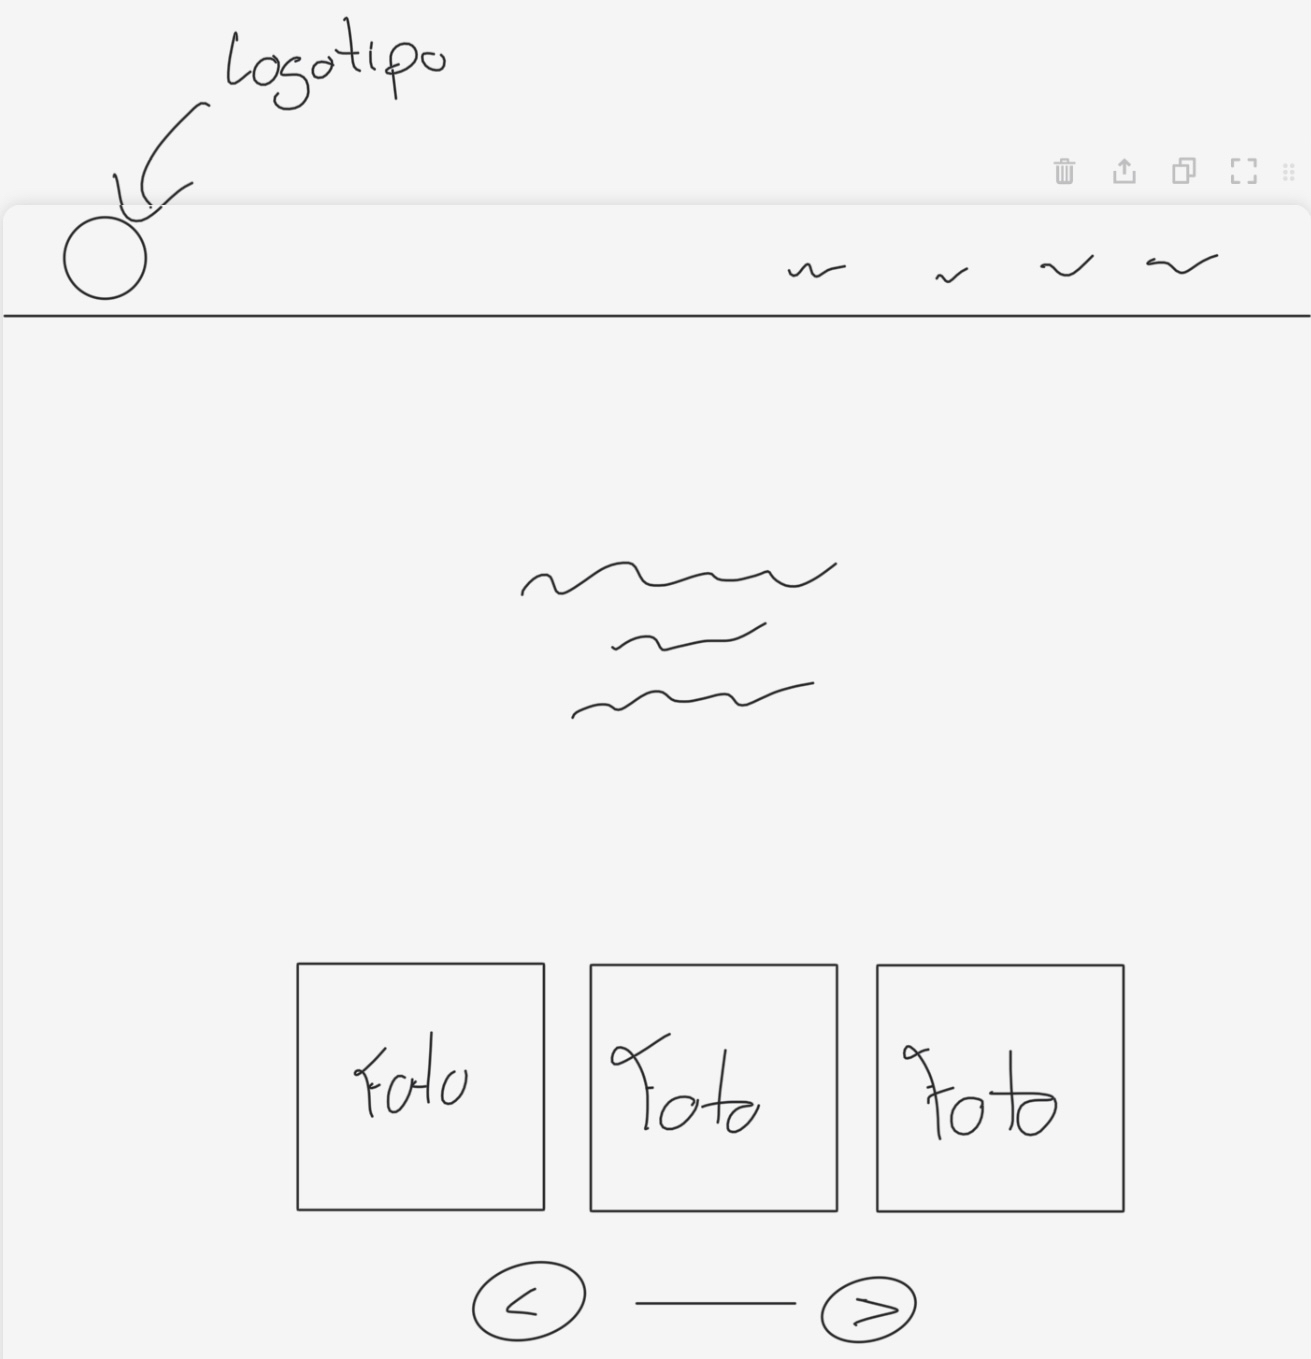 Logotipo
Foto Foto Foto
< >